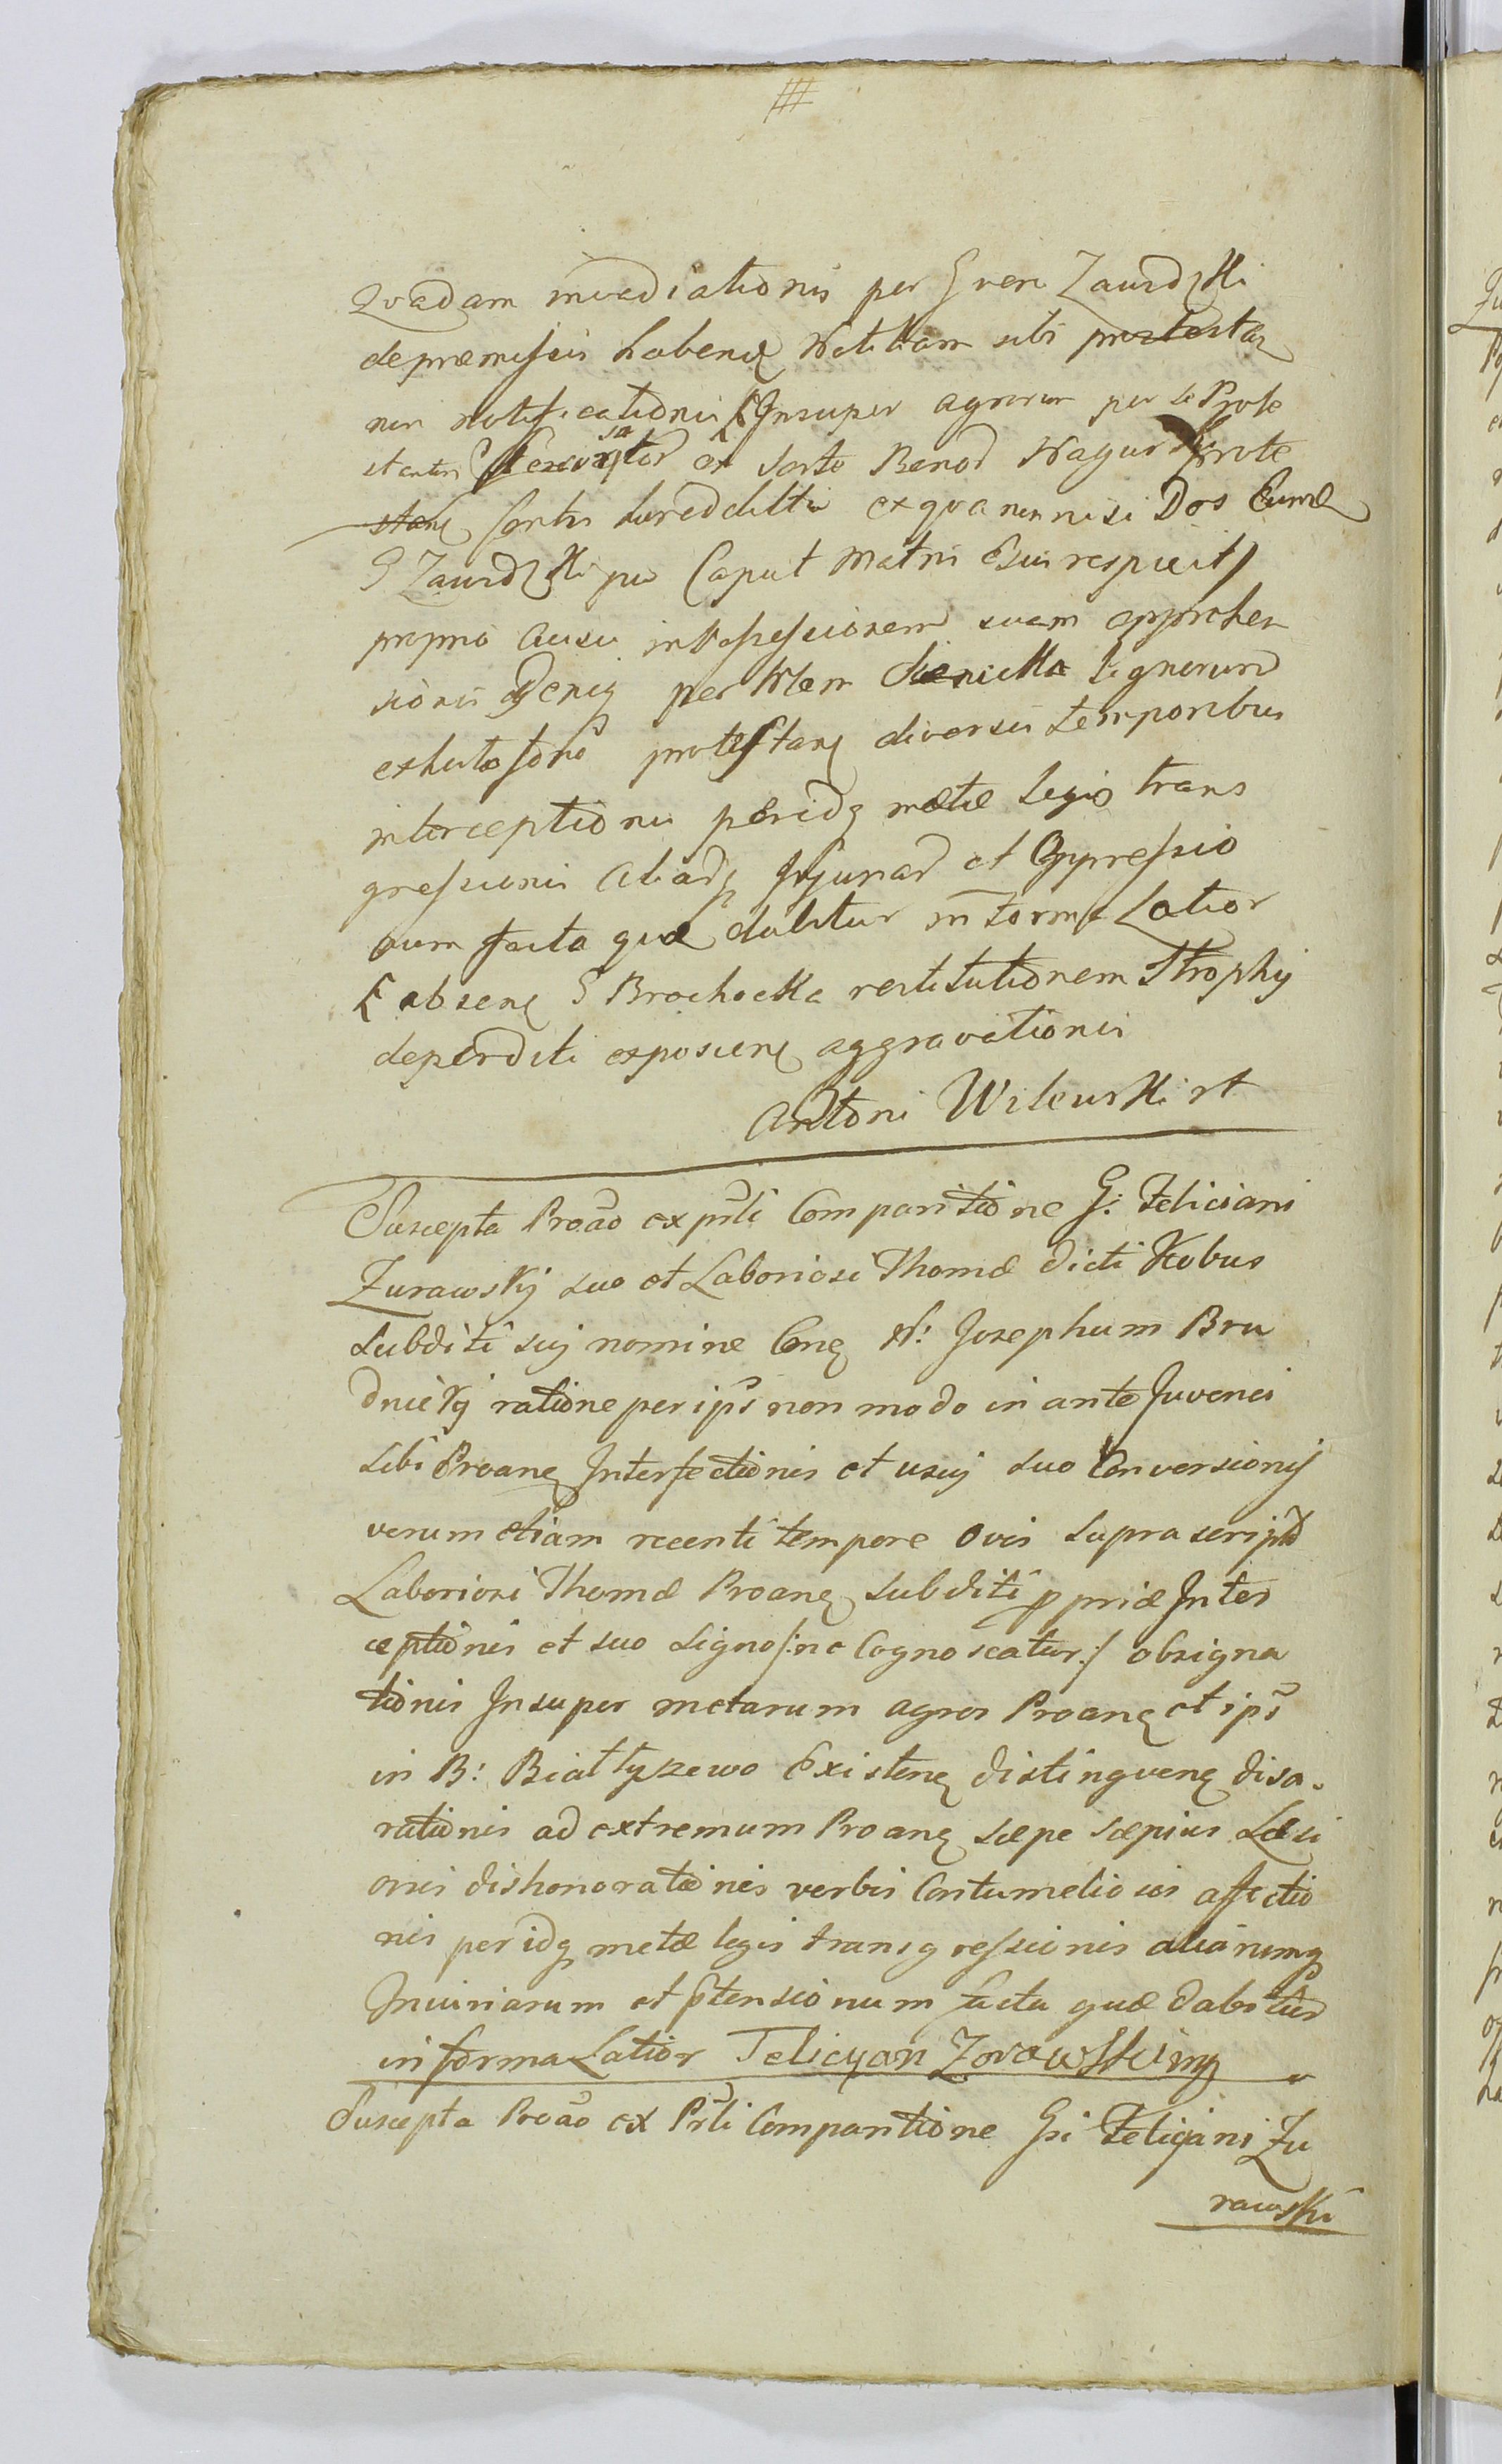 Qvadam invadiationis per Gren Zawdzki
de præmissis habenę Notitiam sibi protestaę
non notificationis Insuper agrorum per se Prote
stantem ex Sorte Benor Wagur Prote
stanę Sortis hæredditti ex qva non nisi Dos Eume
G Zawdzki que Caput Matris Esui respicit /
proprio Ausu in Possessionem suam apprehen
sionis Deniq per lignorum
protestanę diversis temporibus
interceptionis peridq metæ legis trans
gressionis Aliarq Injuriar et Oppressio
num facta quæ dabitur in forma Latior
absenę G Brochocka restitutionem Strophij
deperditi exposcenę aggravationis
Antoni Wilewski rt
Suscepta Proāo ex prsti Comparitione G: Feliciani
Zurawskij suo et Laboriosi Thomæ dicti Kobus
Subditi suj nomine Cnę N: Josephum Bru
dnickj ratione per ips non modo in ante Juvenci
sibi Proanę Interfectionis et usuj suo Conversionij
verum etiam recenti tempore Ovis supra script
Laboriosi Thomæ Proanę Subditi p priæ Inter
ceptionis et suo signo /: ne Cognoscatur :/ obsigna
tionis Insuper metarum agros Proanę et ips
in B: Białłyszewo Existenę distingvenę disa
rationis ad extremum Proanę sæpe sæpius Læsi
onis dishonorationis verbis Contumeliosis affectio
nis peridq metæ legis transgressionis aliarumq
Iniuriarum et ptensionum facta quæ dabitur
in forma Latior Felicyan Zorawski mp
Suscepta Proāo ex Prsti Comparitione Gsi Felicjani Zu
rawski